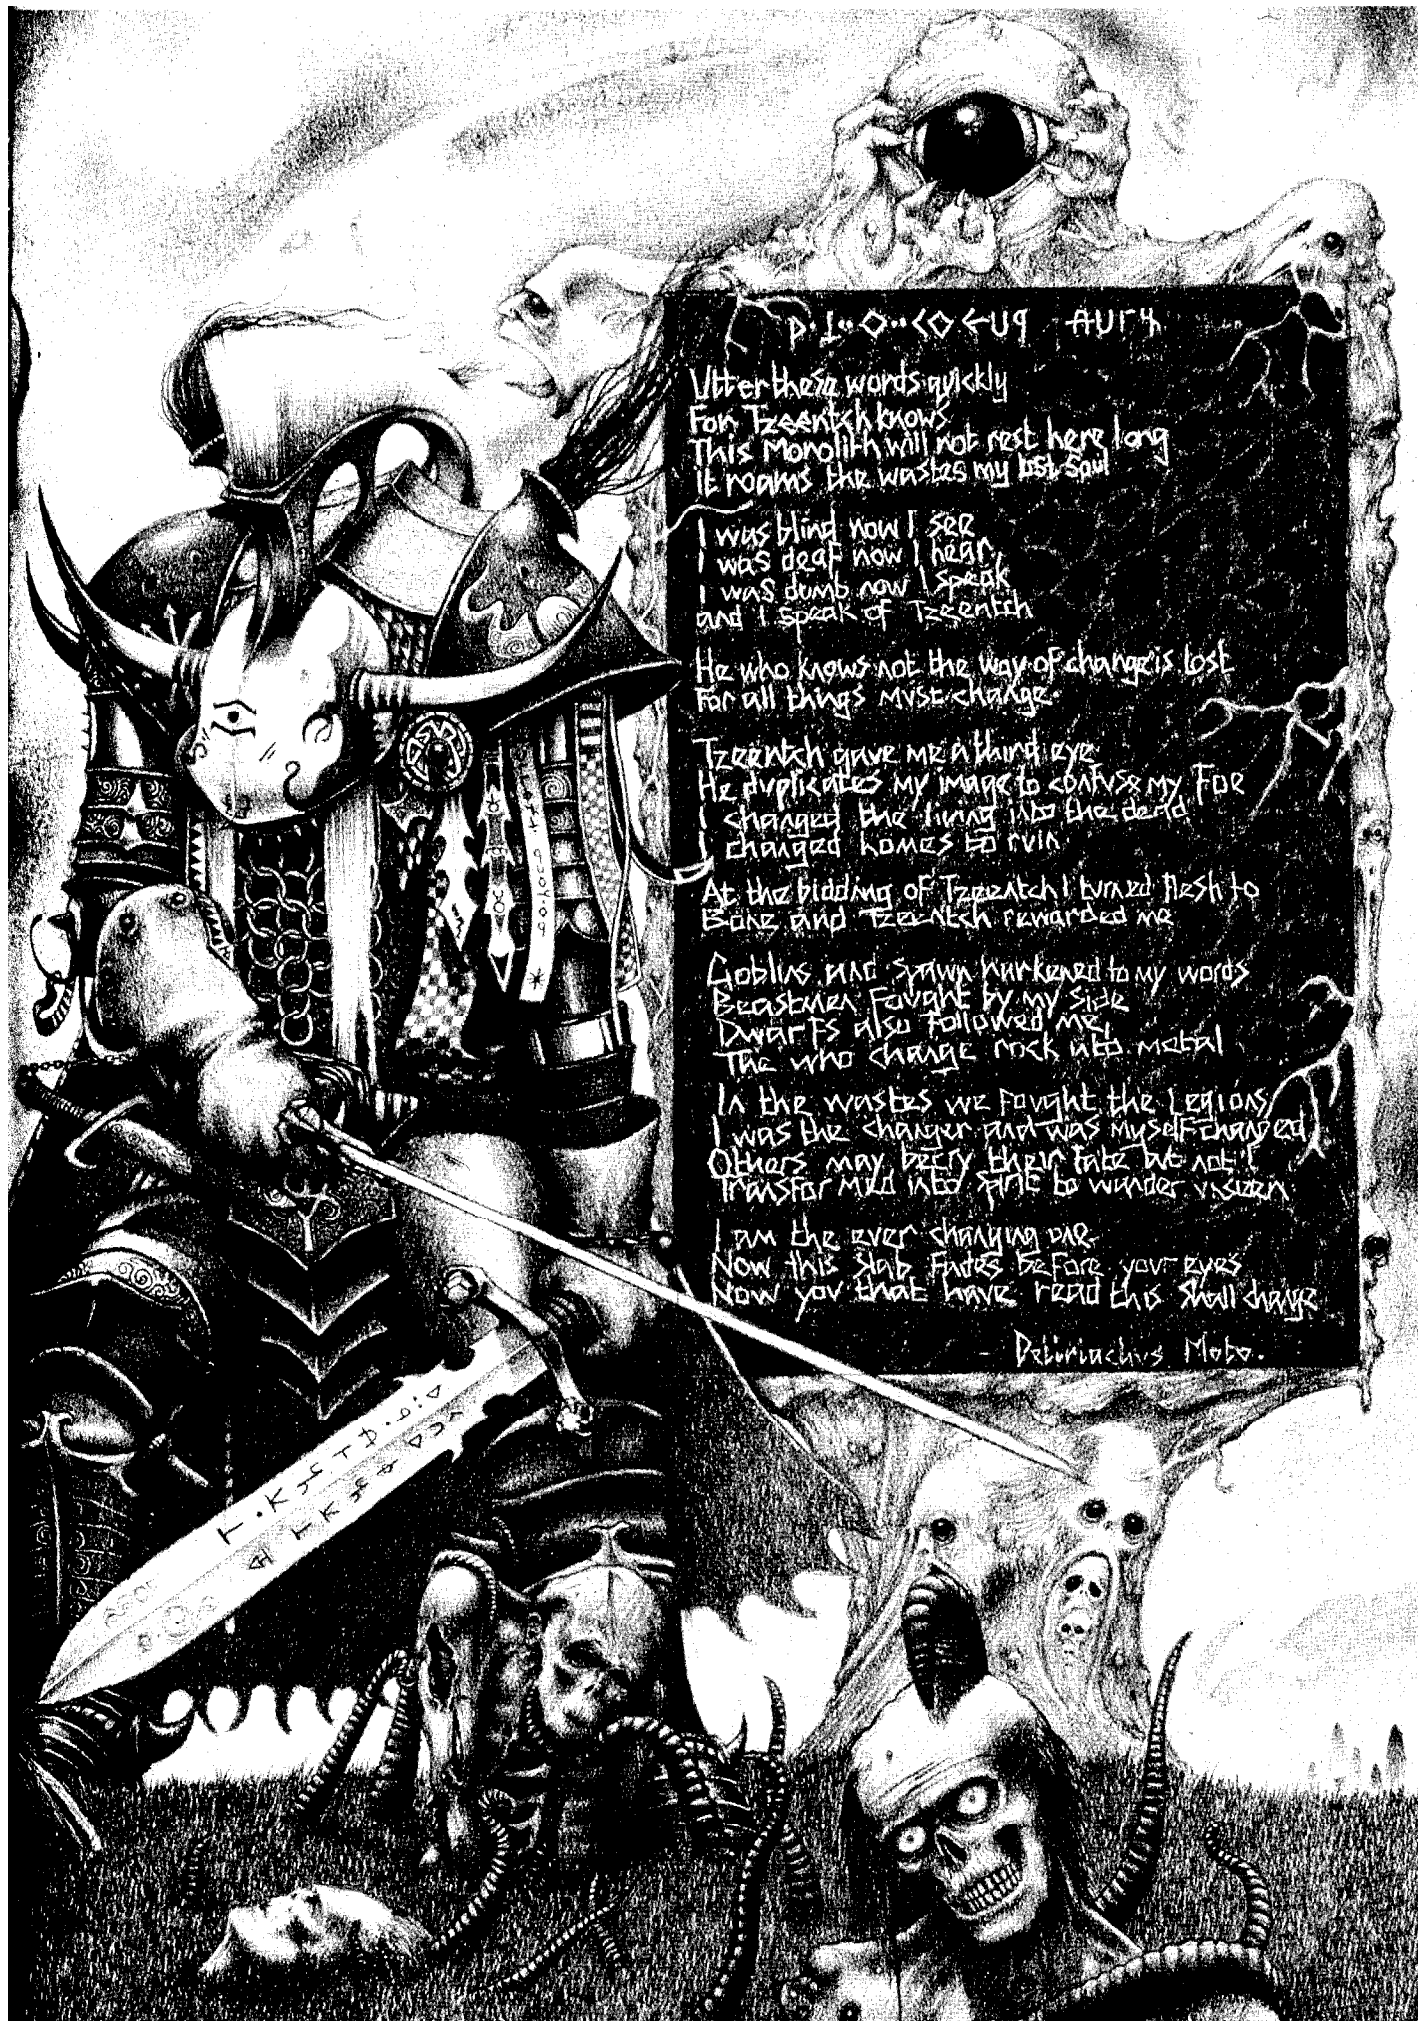 Utter these words quickly
For Tzeentch knows
This Monolith will not rest here long
it roams the wastes my lost soul
I was blind now I see
I was deaf now I hear,
I was dumb now I speak
and I speak of Tzeentch
He who knows not the way of change is lost
For all things must change
Tzeentch gave me a third eye
He duplicates my image to confuse my Foe
I changed the living into the dead
I changed homes to ruin
At the bidding of Tzeentch I turned flesh to
Bone and Tzeentch rewarded me
Goblins and Spawn harkened to my words
Beastmen Fought by my Side
Dwarfs also Followed me,
The who change rock into metal
In the wastes we Fought the Legions
I was the changer and was myself changed
Others may their fate but not I
Transformed into Spirit to wander
I am the ever changing one
Now this Slab Fades before your eyes
Now you that have read this Shall change
Moto.